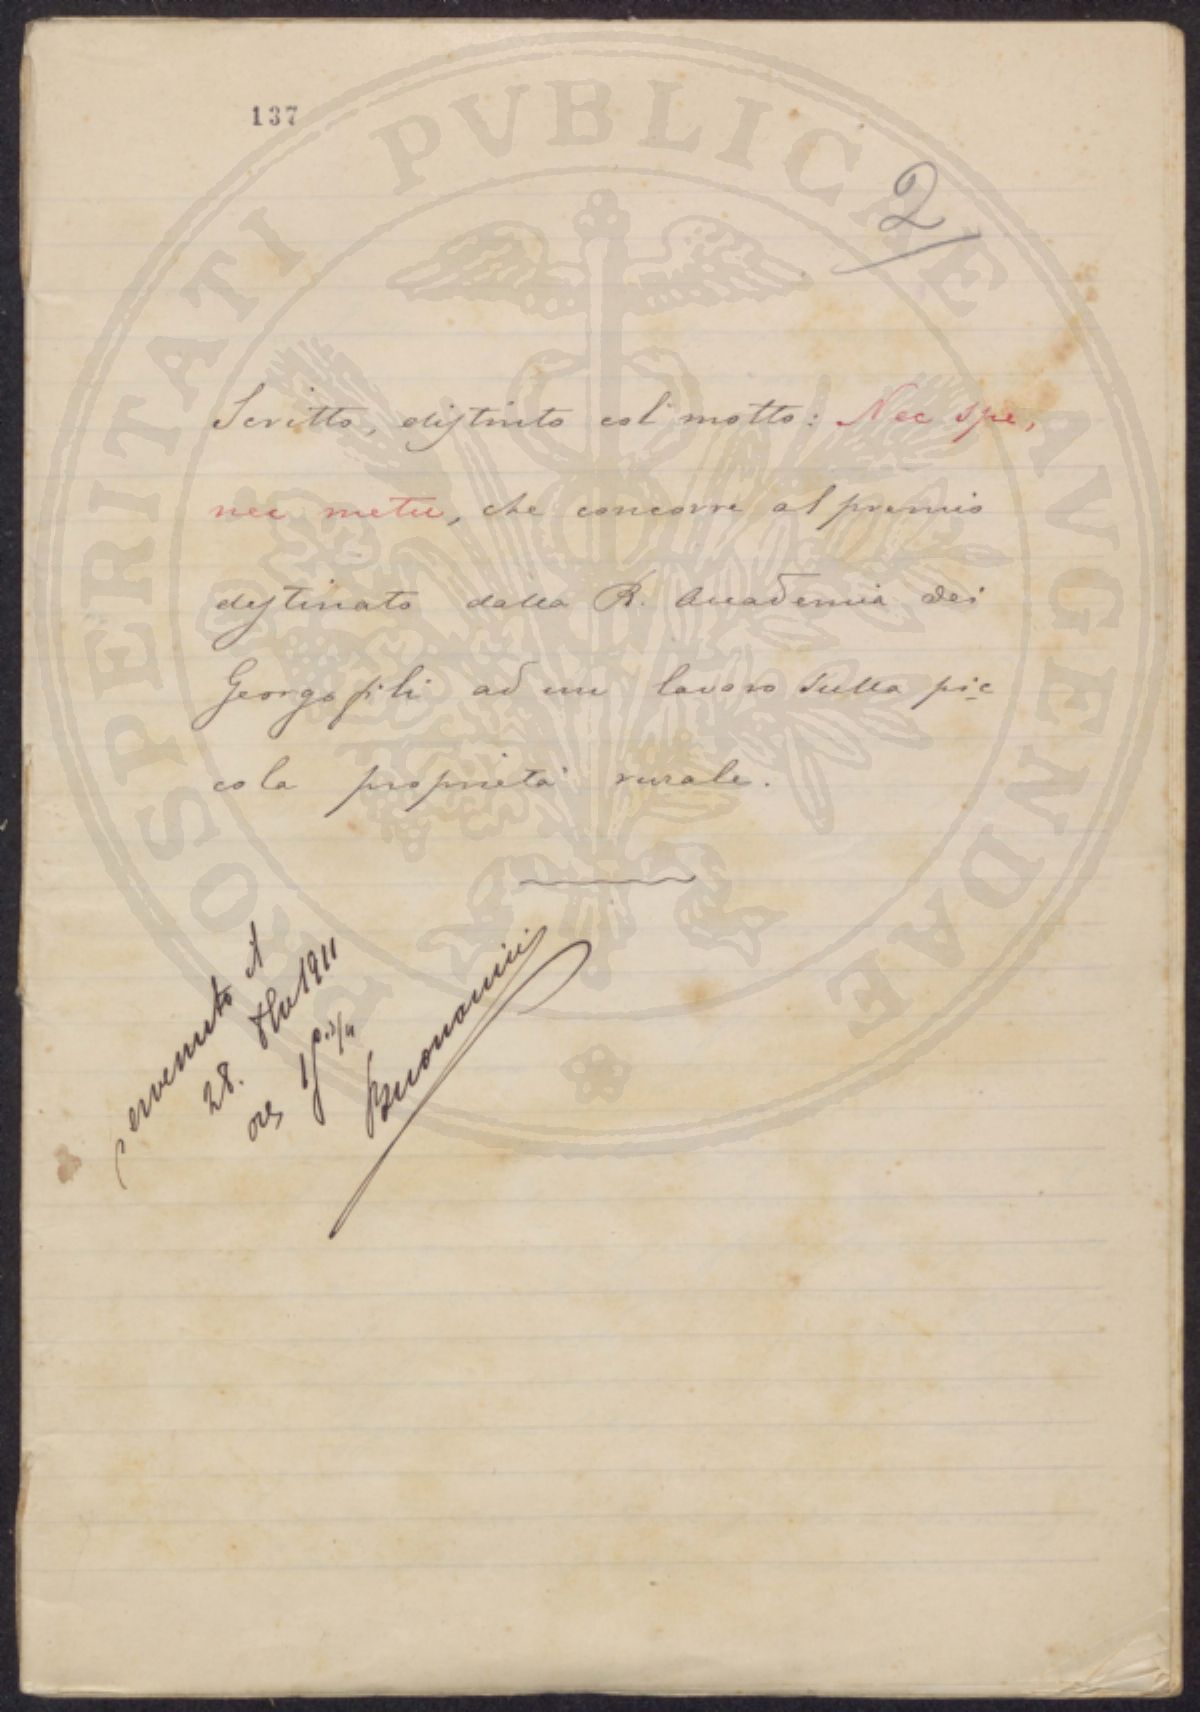 137
2
Scritto, distinto col motto: Nec spe,
nec metu, che concorre al premio
destinato dalla R. Accademia dei
Georgofili ad un lavoro sulla pic
cola proprietà rurale.
PROSPERITATI PVBLICAE AVGENDAE
Pervenuto il
28. Xbre 1911
ore
Buonomini